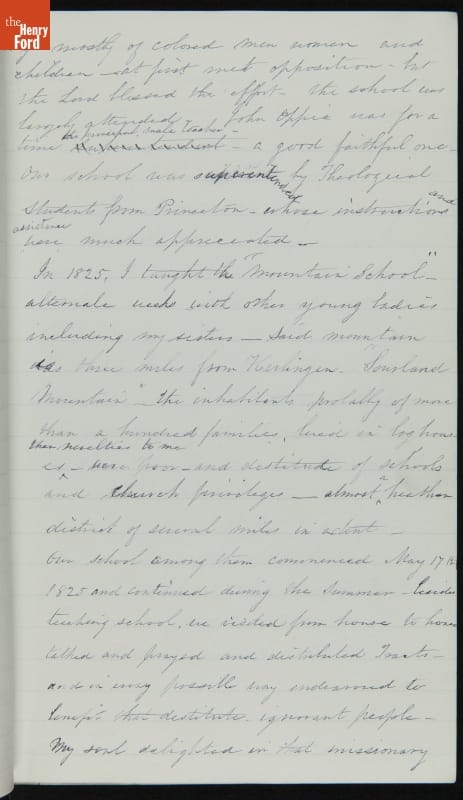 the
Henry
Ford
mostly of colored men women and
children - at first met opposition - but
the Lord blessed the effort - the school was
largely attended - John Oppie was for a
time the principal, male teacher - a good faithful one -
Our school was superintended by Theological
Students from Princeton - whose instructions and
assistance were much appreciated -
In 1825, I taught the "Mountain School" -
alternate weeks with other young ladies
including my sisters - Said mountain
was three miles from Harlingen - "Sourland
Mountain" - the inhabitants probably of more
than a hundred families, lived in log hous-
then novelties to me
es - were poor - and destitute of schools
and church privileges - almost heathen
district of several miles in extent -
Our school among them commenced May 17
1825 and continued during the Summer - Besides
teaching school, we visited from house to house
talked and prayed and distributed Tracts -
and in every possible way endeavored to
benefit that destitute ignorant people -
My soul delighted in that missionary